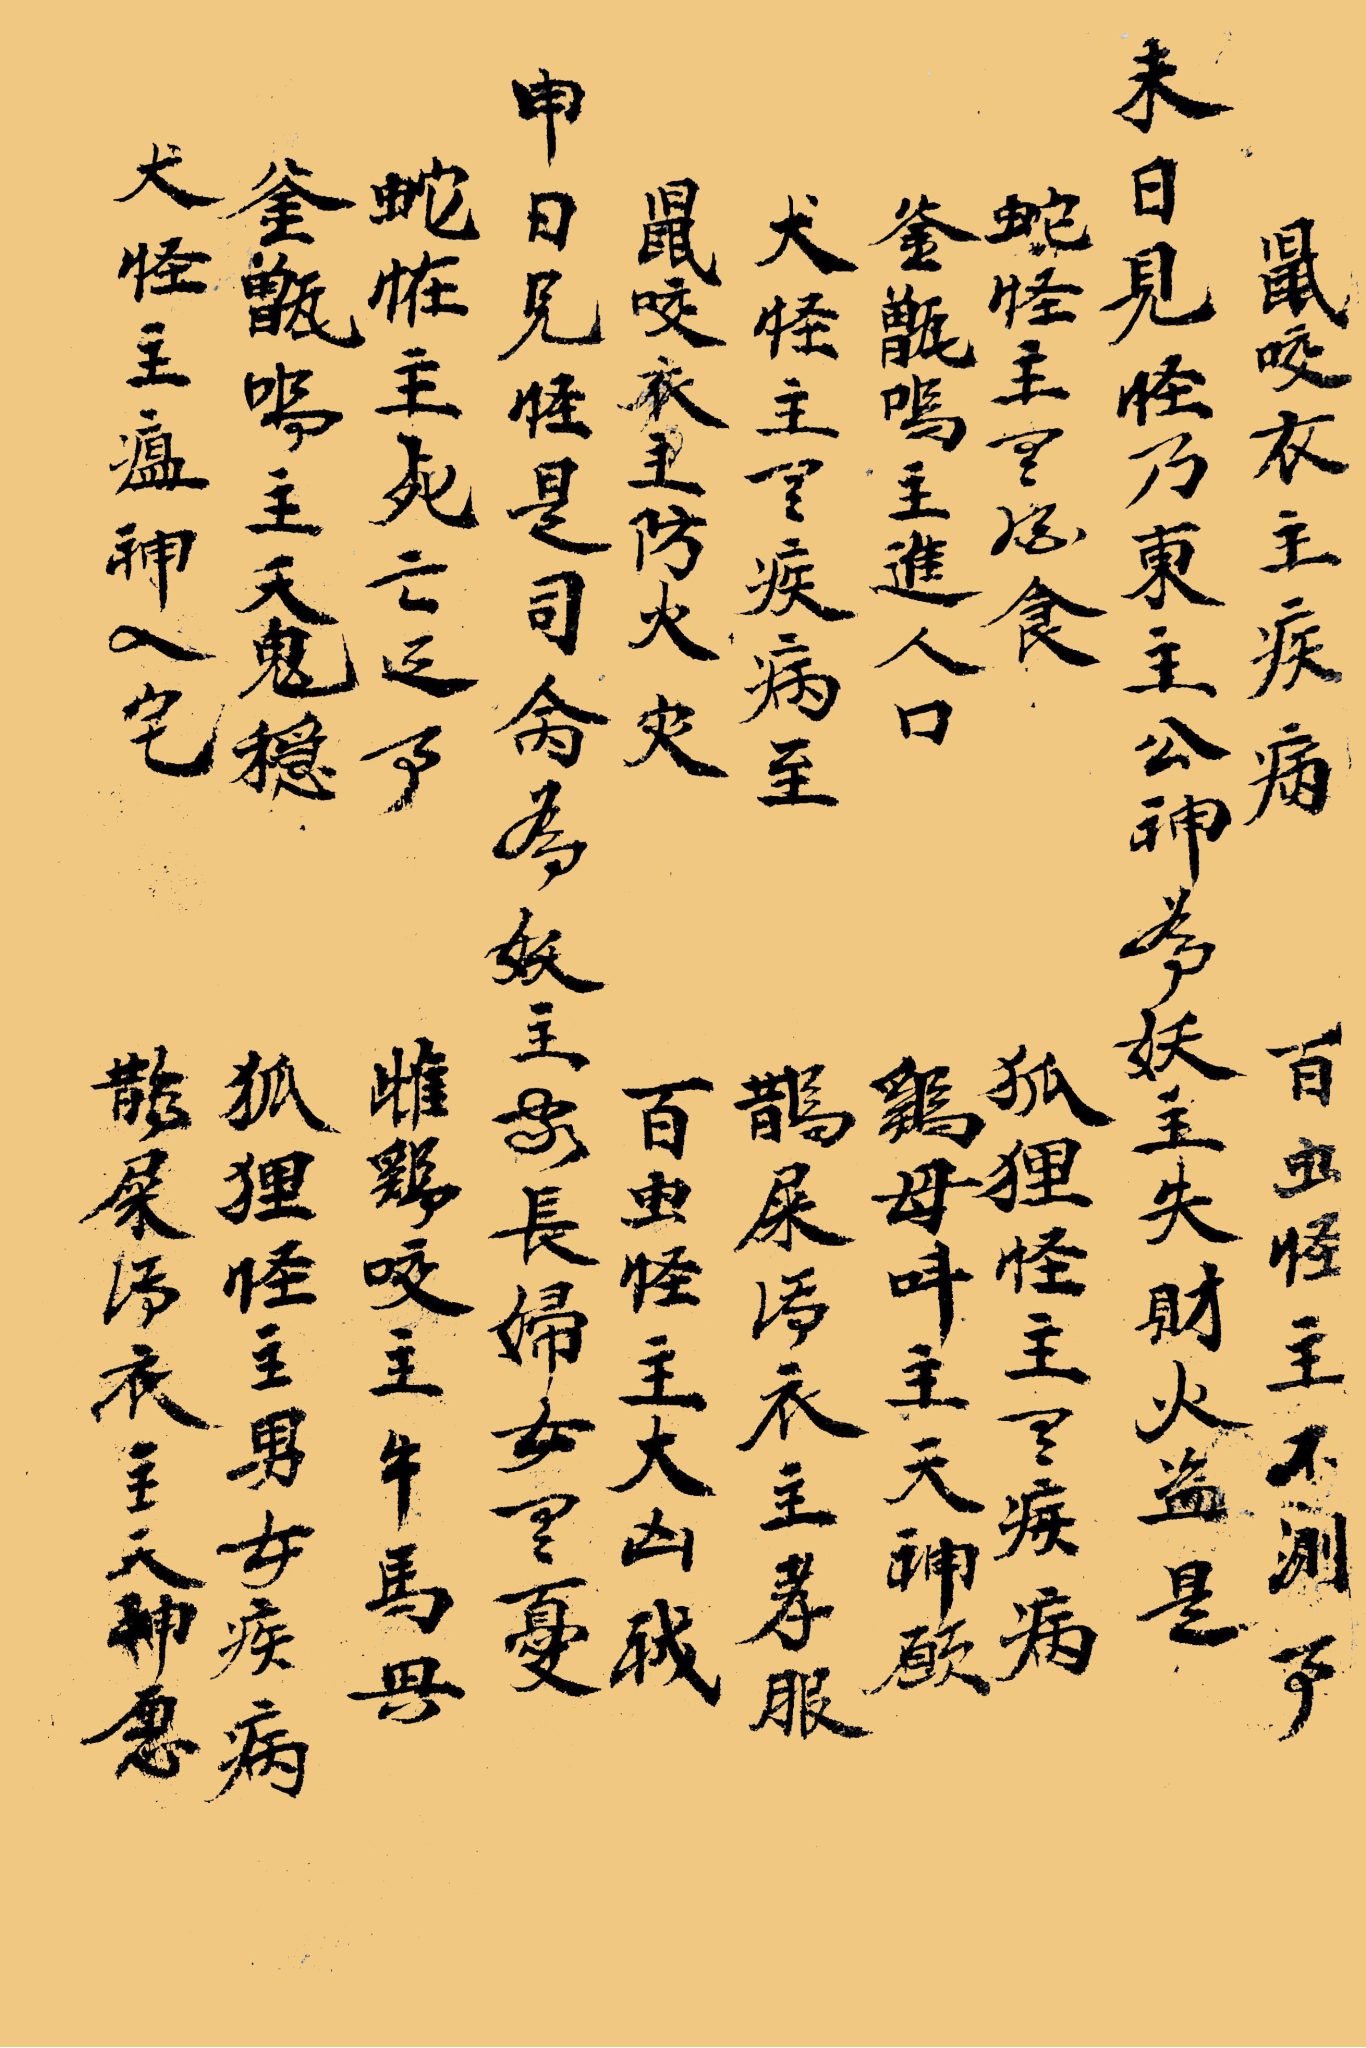 鼠咬衣主疾病　百虫怪主不測事
未日見怪乃東主公神為妖主失財火盗是
蛇怪主有酒食　狐狸怪主有疾病
釜甑鳴主進人口　鷄母叫主天神願
犬怪主有疾病至　鵲屎污衣主孝服
鼠咬衣主防火灾　百虫怪主大凶戝
申日見怪是司命為妖主家長婦女有憂
蛇怪主死亡之事　雌鷄咬主牛馬
釜甑鳴主天鬼穏　狐狸怪主男女疾病
犬怪主瘟神入宅　鵲屎污衣主天神愿